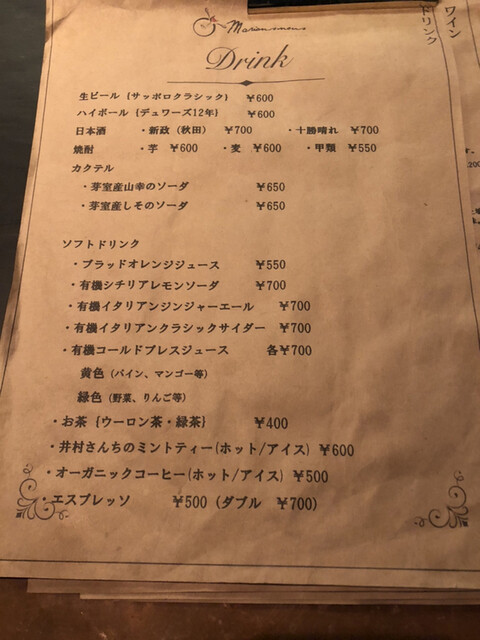 Drink
生ビール {サッポロクラシック} ￥600
ハイボール {デュワーズ12年} ￥600
日本酒 ・新政 (秋田) ￥700 ・十勝晴れ ￥700
焼酎 ・芋 ￥600 ・麦 ￥600 ・甲類 ￥550
カクテル
・芽室産山幸のソーダ ￥650
・芽室産しそのソーダ ￥650
ソフトドリンク
・ブラッドオレンジジュース ￥550
・有機シチリアレモンソーダ ￥700
・有機イタリアンジンジャーエール ￥700
・有機イタリアンクラシックサイダー ￥700
・有機コールドプレスジュース 各￥700
黄色 (パイン、マンゴー等)
緑色 (野菜、りんご等)
・お茶 {ウーロン茶・緑茶} ￥400
・井村さんちのミントティー(ホット/アイス) ￥600
・オーガニックコーヒー(ホット/アイス) ￥500
・エスプレッソ ￥500 (ダブル ￥700)
ワイン
ドリンク